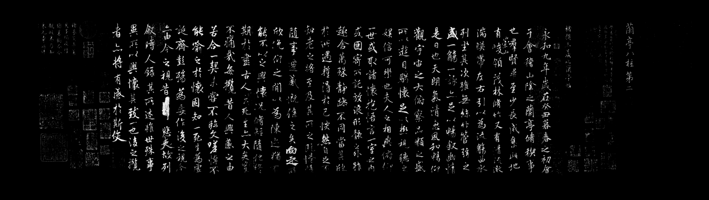 蘭亭八柱第二
永和九年歲在癸丑暮春之初會
于會稽山陰之蘭亭脩稧事
也群賢畢至少長咸集此地
有峻領茂林脩竹又有清流激
湍暎帶左右引以為流觴曲水
列坐其次雖無絲竹管弦之
盛一觴一詠亦足以暢敘幽情
是日也天朗氣清惠風和暢仰
觀宇宙之大俯察品類之盛
所以遊目騁懷足以極視聽之
娛信可樂也夫人之相與俯仰
一世或取諸懷抱悟言一室之內
或因寄所託放浪形骸之外雖
趣舍萬殊靜躁不同當其欣
於所遇暫得於己快然自足不
知老之將至及其所之既惓情
隨事遷感慨係之矣向之所
欣俛仰之閒以為陳迹猶不
能不以之興懷況脩短隨化終
期於盡古人云死生亦大矣豈
不痛哉每攬昔人興感之由
若合一契未嘗不臨文嗟悼不
能喻之於懷固知一死生為虛
誕齊彭殤為妄作後之視今
亦由今之視昔悲夫故列
敘時人錄其所述雖世殊事
異所以興懷其致一也後之攬
者亦將有感於斯文